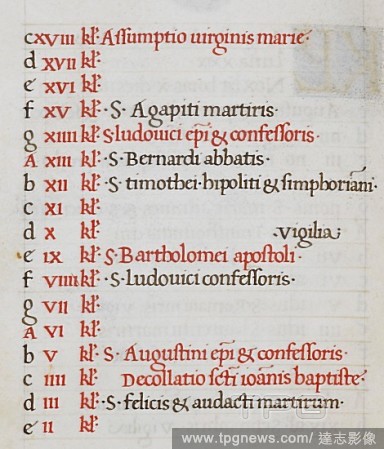 c XVIII kł· Assumptio uirginis marie·
d XVII kł·
e XVI kł·
f XV kł· ·S· Agapiti martiris·
g XIIII kł· S ludouici epi & confessoris·
A XIII kł· ·S· Bernardi abbatis·
b XII kł· ·S· timothei· hipoliti & simphoriani·
c XI kł·
d X kł· ·Vigilia·
e IX kł· ·S· Bartholomei apostoli·
f VIII kł· ·S· ludouici confessoris·
g VII kł·
A VI kł·
b V kł· ·S· Augustini epi & confessoris·
c IIII kł· Decollatio scti ioanis baptiste·
d III kł· ·S· felicis & audacti martirum·
e II kł·
www.tpgnews.com/達志影像